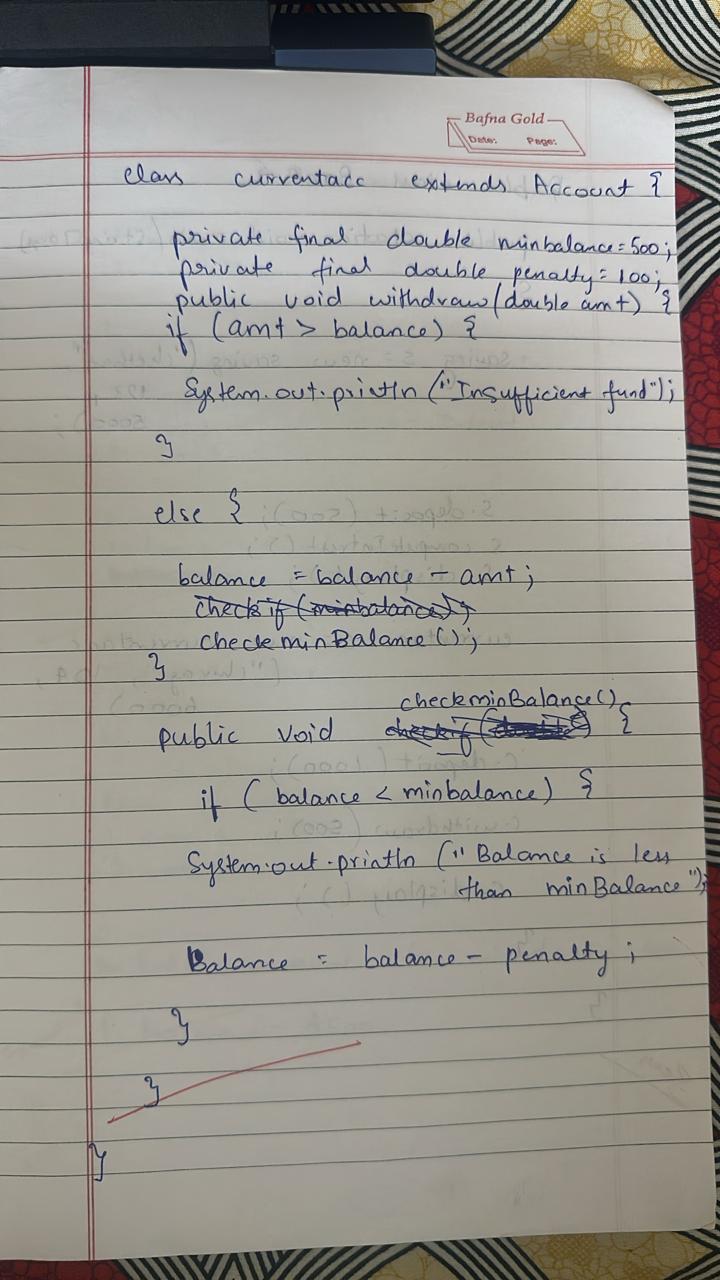 Bafna Gold
Date: Page:
class currentacc extends Account {
private final double minbalance=500;
private final double penalty=100;
public void withdraw(double amt) {
if (amt > balance) {
System.out.println ("Insufficient fund");
}
else {
balance = balance - amt;
check if (minbalance);
checkminBalance();
}
checkminBalance()
public void check if {
if (balance < minbalance) {
System.out.println ("Balance is less
than minBalance");
Balance = balance - penalty;
}
}
}